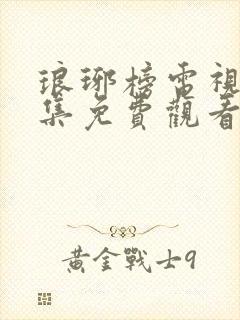 琅琊榜電視
集免費觀看
黃金戰士9